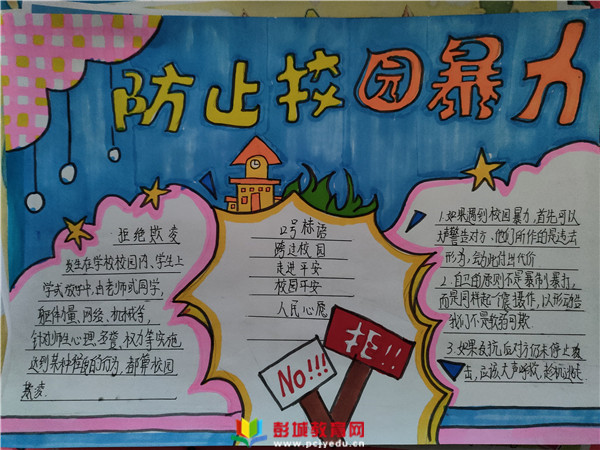 防止校园暴力
拒绝欺凌
发生在学校校园内、学生上
学或放学中,由老师或同学,
躯体力量、网络、机械等,
针对师生心理、名誉、权力等实施
达到某种程度的行为,都算校园
欺凌.
口号标语
跨进校园
走进平安
校园平安
人民心愿
No!!!
拒!!
1.如果遇到校园暴力,首先可以
大声警告对方,他们所作的是违法
形为,会为此付出代价
2.自卫的原则不是暴制暴打,
而是同样起个震慑作,以形动告
我们不是软弱可欺
3.如果反抗后对方仍未停止攻
击,应该大声呼救、趁机逃走
彭城教育网
www.pcjyedu.cn